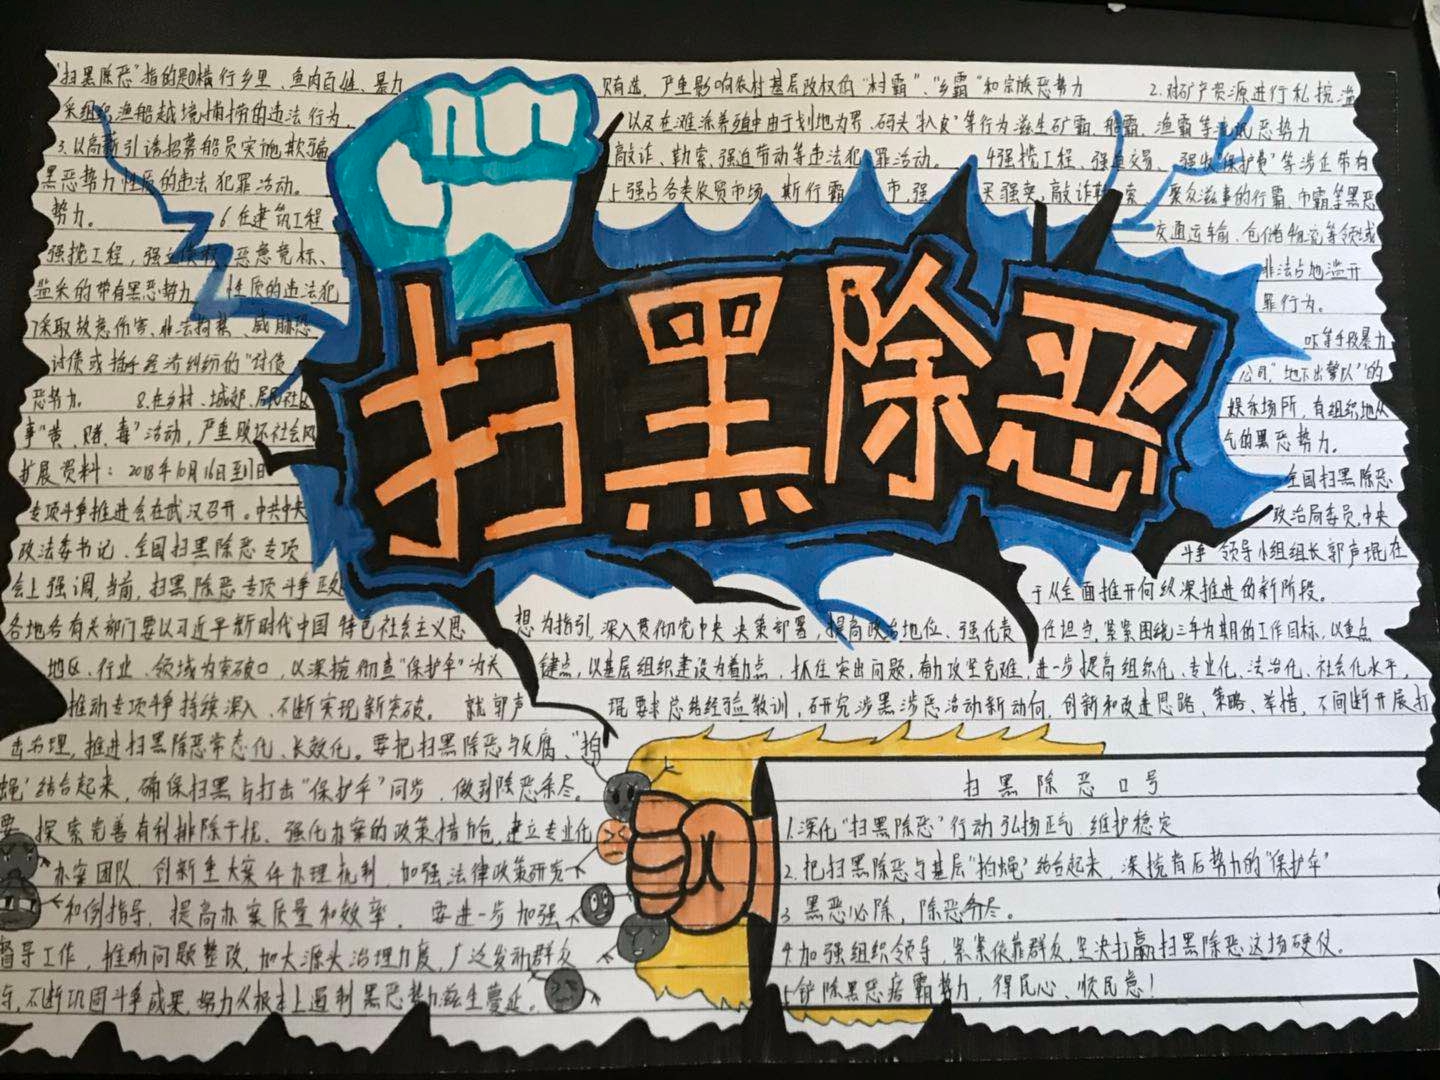 "扫黑除恶"指的是①横行乡里、鱼肉百姓、暴力
贿选,严重影响农村基层政权的"村霸"、"乡霸"和宗族恶势力 2.对矿产资源进行私挖滥
采组织渔船越境捕捞的违法行为,
以及在滩涂养殖中由于划地为界、码头"扒皮"等行为滋生矿霸、船霸、渔霸等流氓恶势力
3.以高薪引诱招募船员实施欺骗
敲诈、勒索、强迫劳动等违法犯罪活动。 4强揽工程、强卖交易、强收"保护费"等涉企带有
黑恶势力性质的违法犯罪活动。
上强占各类农贸市场,斯行霸市,强买强卖,敲诈勒索,聚众滋事的行霸、市霸等黑恶
势力。 6.在建筑工程
交通运输、仓储物流等领域
强揽工程,强立债权,恶意竞标、
非法占地滥开
滥采的带有黑恶势力性质的违法犯
罪行为。
7采取故意伤害、非法拘禁、威胁恐
吓等手段暴力
讨债或插手经济纠纷的"讨债
公司,"地下出警队"的
恶势力。 8.在乡村、城郊、居民社区
娱乐场所,有组织地从
事"黄、赌、毒"活动,严重败坏社会风
气的黑恶势力。
扩展资料: 2018年10月16日至1日
全国扫黑除恶
专项斗争推进会在武汉召开。中共中央
政治局委员,中央
政法委书记、全国扫黑除恶专项
斗争领导小组组长郭声琨在
会上强调,当前,扫黑除恶专项斗争正处
于从全面推开向纵深推进的新阶段。
各地各有关部门要以习近平新时代中国特色社会主义思
想为指引,深入贯彻党中央决策部署,提高政治地位、强化责任担当,紧紧围绕三年为期的工作目标,以重点
地区、行业、领域为突破口,以深挖彻查"保护伞"为关
键点,以基层组织建设为着力点,抓住突出问题,奋力攻坚克难,进一步提高组织化、专业化、法治化、社会化水平,
推动专项斗争持续深入、不断实现新突破。 就郭声
琨要求总结经验教训,研究涉黑涉恶活动新动向,创新和改进思路、策略、举措,不间断开展打
击办理,推进扫黑除恶常态化、长效化。要把扫黑除恶与反腐、"拍
蝇"结合起来,确保扫黑与打击"保护伞"同步,做到除恶务尽。
要探索完善有利排除干扰、强化办案的政策措施,建立专业化
办案团队,创新重大案件办理机制,加强法律政策研究
和例指导,提高办案质量和效率。 要进一步加强
督导工作,推动问题整改,加大源头治理力度,广泛发动群众
,不断巩固斗争成果,努力从根本上遏制黑恶势力滋生蔓延。
扫黑除恶
扫黑除恶口号
1.深化"扫黑除恶"行动弘扬正气、维护稳定
2.把扫黑除恶与基层"拍蝇"结合起来,深挖背后势力的"保护伞"
3 黑恶必除,除恶务尽。
4.加强组织领导,紧紧依靠群众,坚决打赢扫黑除恶这场硬仗。
5铲除黑恶痞霸势力,得民心、顺民意!